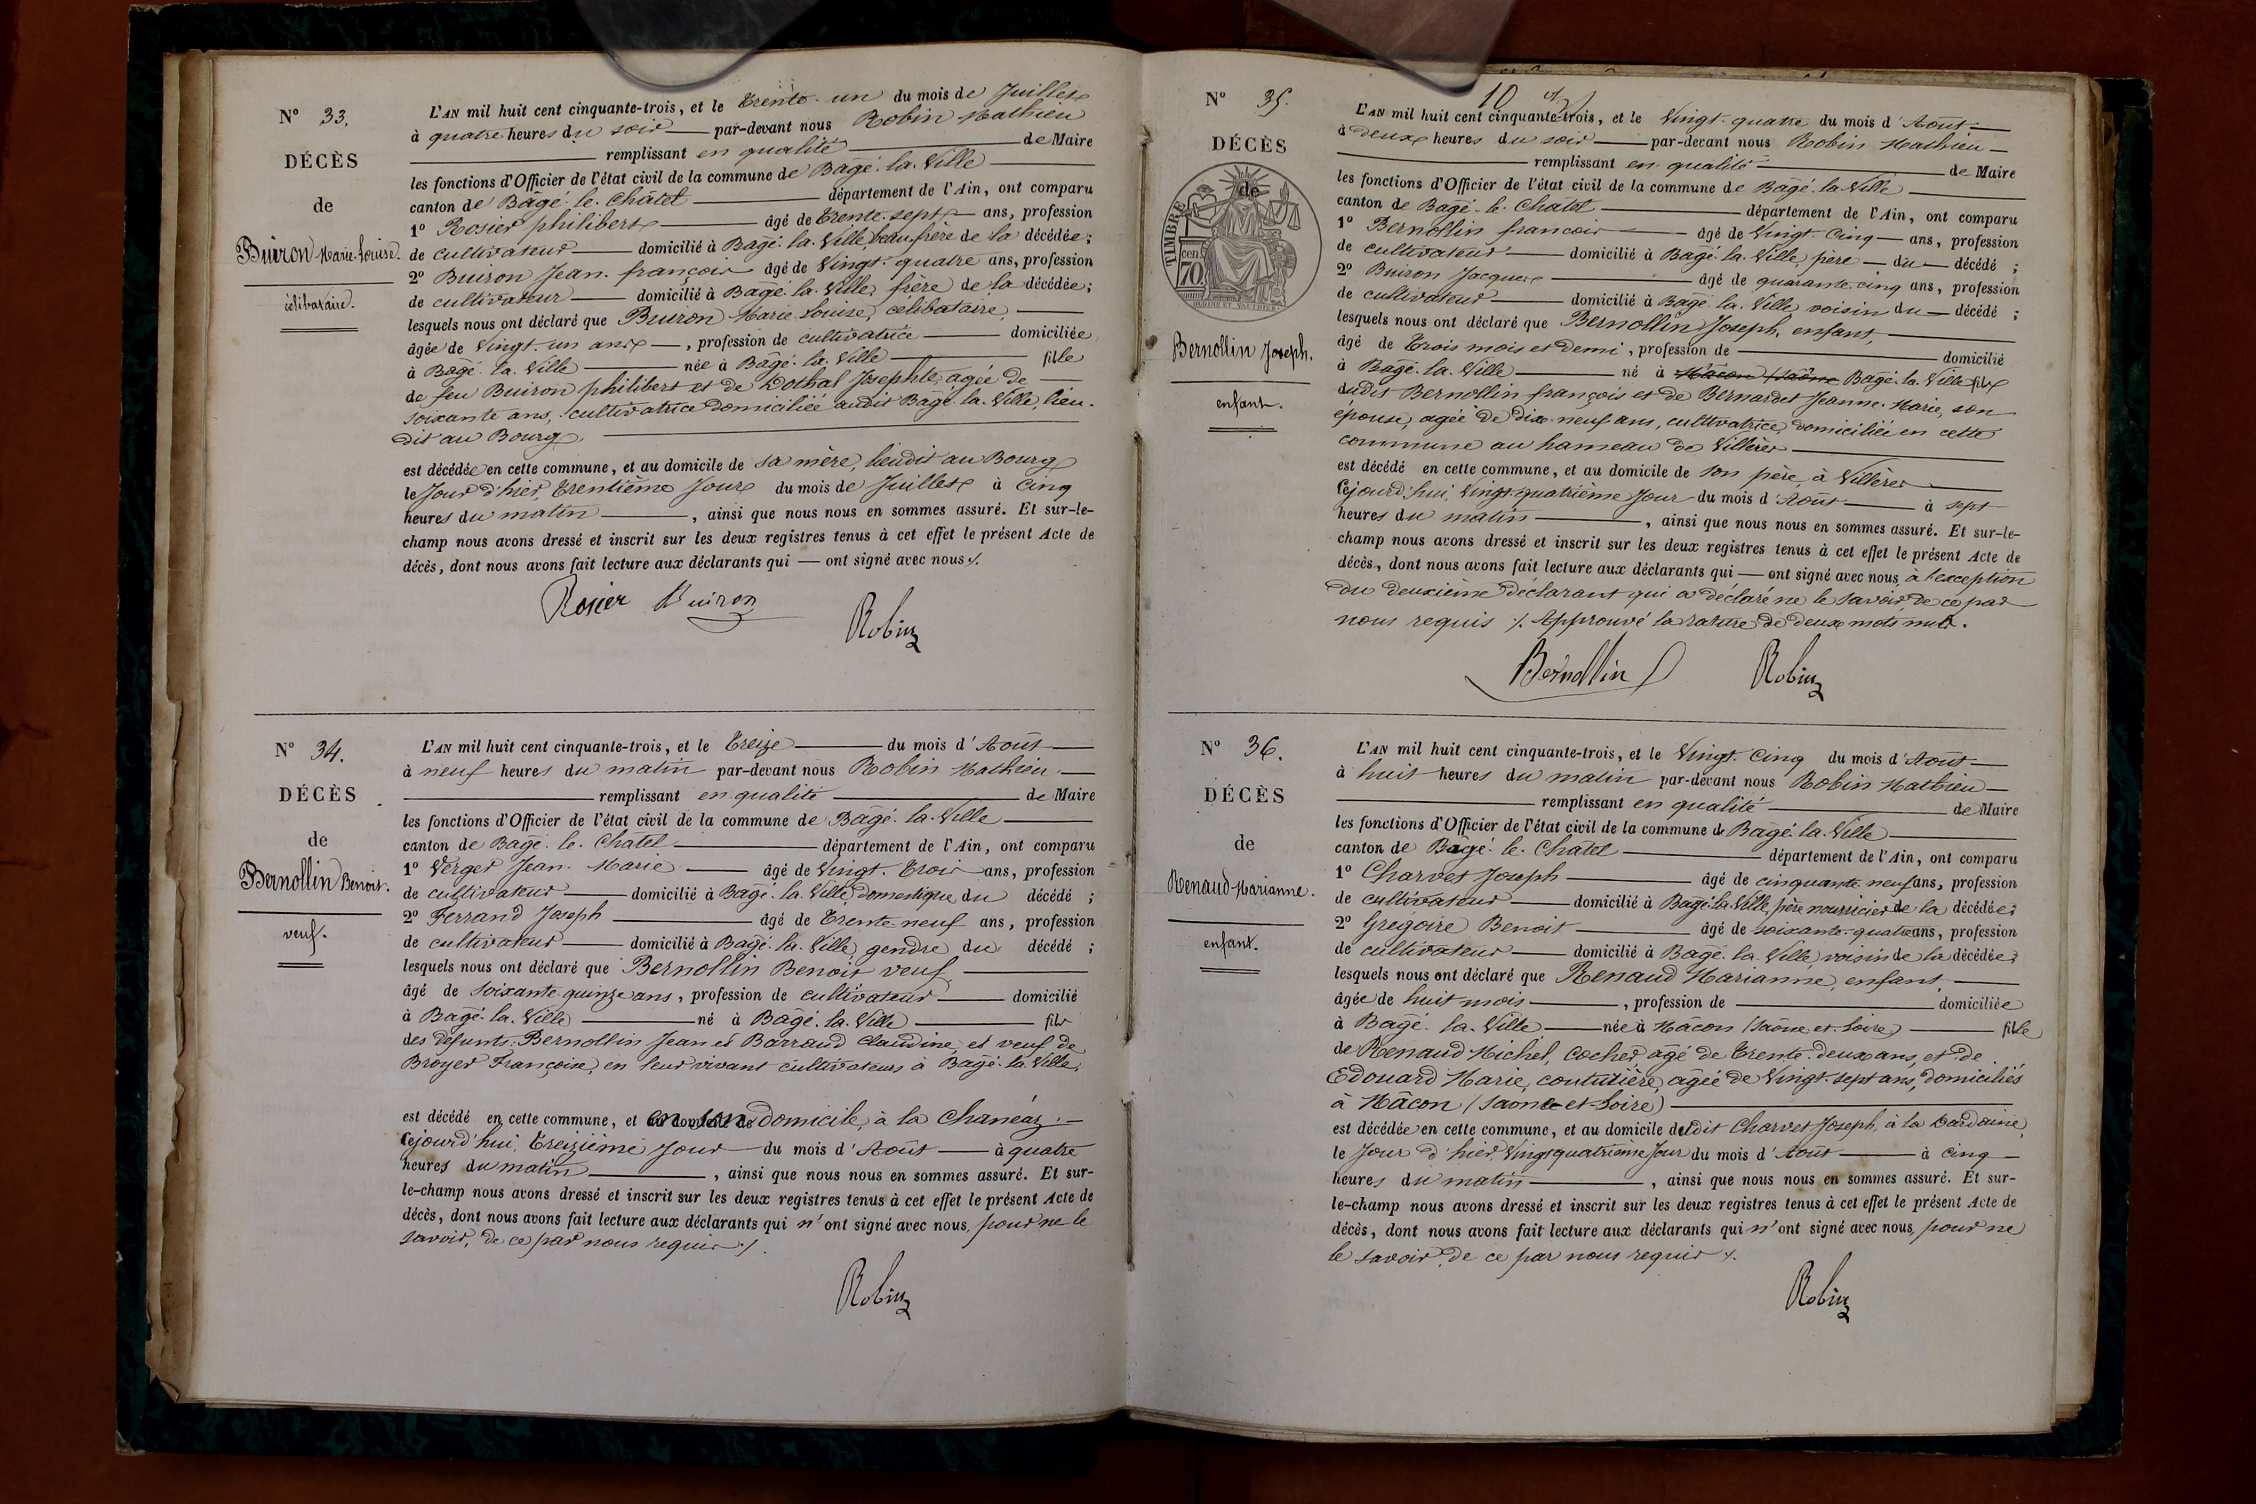 N° 33.
DÉCÈS
de
Buiron Marie-Louise.
célibataire.
L'AN mil huit cent cinquante-trois, et le Trente-un du mois de Juillet
à quatre heures du soir par-devant nous Robin Mathieu
remplissant en qualité de Maire
les fonctions d'Officier de l'état civil de la commune de Bagé-la-Ville
canton de Bâgé-le-Châtel département de l'Ain, ont comparu
1° Rosier philibert âgé de Trente-sept ans, profession
de cultivateur domicilié à Bagé-la-Ville, beau frère de la décédée;
2° Buiron Jean-françois âgé de Vingt-quatre ans, profession
de cultivateur domicilié à Bagé-la-Ville, frère de la décédée;
lesquels nous ont déclaré que Buiron Marie-Louise, célibataire,
âgée de Vingt-un ans, profession de cultivatrice domiciliée
à Bagé-la-Ville née à Bâgé-la-Ville fille
de feu Buiron philibert et de Dothal Josephte, agée de
soixante ans, cultivatrice domiciliée audit Bagé-la-Ville, lieu-
dit au Bourg,
est décédée en cette commune, et au domicile de sa mère, lieudit au Bourg
le Jour d'hier, Trentième Jour du mois de Juillet à Cinq
heures du matin, ainsi que nous nous en sommes assuré. Et sur-le-
champ nous avons dressé et inscrit sur les deux registres tenus à cet effet le présent Acte de
décès, dont nous avons fait lecture aux déclarants qui — ont signé avec nous ./.
Rosier Buiron
Robin
N° 34.
DÉCÈS
de
Bernollin Benoit.
veuf.
L'AN mil huit cent cinquante-trois, et le Treize du mois d'Août
à neuf heures du matin par-devant nous Robin Mathieu
remplissant en qualité de Maire
les fonctions d'Officier de l'état civil de la commune de Bagé-la-Ville
canton de Bagé-le-Châtel département de l'Ain, ont comparu
1° Verger Jean-Marie âgé de Vingt-Trois ans, profession
de cultivateur domicilié à Bagé-la-Ville, domestique du décédé ;
2° Ferrand Joseph âgé de Trente-neuf ans, profession
de cultivateur domicilié à Bagé-la-Ville, gendre du décédé ;
lesquels nous ont déclaré que Bernollin Benoit veuf,
âgé de soixante-quinze ans, profession de cultivateur domicilié
à Bagé-la-Ville né à Bagé-la-Ville fils
des défunts Bernollin Jean et Barraud Claudine, et veuf de
Broyer Françoise, en leur vivant cultivateurs à Bagé-la-Ville,
est décédé en cette commune, et en son domicile, à la Chanéaz.
Cejourd'hui, Treizième Jour du mois d'Août à quatre
heures du matin, ainsi que nous nous en sommes assuré. Et sur-
le-champ nous avons dressé et inscrit sur les deux registres tenus à cet effet le présent Acte de
décès, dont nous avons fait lecture aux déclarants qui n'ont signé avec nous, pour ne le
savoir, de ce par nous requis ./.
Robin
10
N° 35.
DÉCÈS
de
TIMBRE
cen
70
Bernollin Joseph.
enfant.
L'AN mil huit cent cinquante-trois, et le Vingt-quatre du mois d'Août
à deux heures du soir par-devant nous Robin Mathieu
remplissant en qualité de Maire
les fonctions d'Officier de l'état civil de la commune de Bagé-la-Ville
canton de Bagé-le-Châtel département de l'Ain, ont comparu
1° Bernollin francois âgé de Vingt-Cinq ans, profession
de cultivateur domicilié à Bagé-la-Ville, père du décédé ;
2° Buiron Jacques âgé de quarante-cinq ans, profession
de cultivateur domicilié à Bagé-la-Ville voisin du décédé ;
lesquels nous ont déclaré que Bernollin Joseph, enfant,
âgé de Trois mois et demi, profession de domicilié
à Bagé-la-Ville né à Mâcon (Saône Bagé-la-Ville fils
dudit Bernollin françois et de Bernardet Jeanne-Marie, son
épouse, agée de dix-neuf ans, cultivatrice, domiciliée en cette
commune au hameau de Villèrer
est décédé en cette commune, et au domicile de son père, à Villèrer
Cejourd'hui, Vingt-quatrième Jour du mois d'Août à sept
heures du matin, ainsi que nous nous en sommes assuré. Et sur-le-
champ nous avons dressé et inscrit sur les deux registres tenus à cet effet le présent Acte de
décès, dont nous avons fait lecture aux déclarants qui — ont signé avec nous, à l'exception
du deuxième déclarant qui a déclaré ne le savoir de ce par
nous requis ./. Approuvé la rature de deux mots nuls.
Bernollin Robin
N° 36.
DÉCÈS
de
Renaud Marianne.
enfant.
L'AN mil huit cent cinquante-trois, et le Vingt-Cinq du mois d'Août
à huit heures du matin par-devant nous Robin Mathieu
remplissant en qualité de Maire
les fonctions d'Officier de l'état civil de la commune de Bagé-la-Ville
canton de Bagé-le-Châtel département de l'Ain, ont comparu
1° Charvet Joseph âgé de cinquante-neuf ans, profession
de cultivateur domicilié à Bagé-la-Ville, père nourricier de la décédée;
2° Grégoire Benoit âgé de soixante-quatre ans, profession
de cultivateur domicilié à Bagé-la-Ville, voisin de la décédée;
lesquels nous ont déclaré que Renaud Marianne, enfant,
âgée de huit mois, profession de domiciliée
à Bagé-la-Ville née à Mâcon (Saône-et-Loire) fille
de Renaud Michel, Cocher, agé de Trente-deux ans, et de
Edouard Marie, couturière, agée de Vingt-sept ans, domiciliés
à Mâcon (Saone-et-Loire)
est décédée en cette commune, et au domicile dudit Charvet Joseph, à la Dardaine,
le Jour d'hier, Vingtquatrième Jour du mois d'Août à cinq
heures du matin, ainsi que nous nous en sommes assuré. Et sur-
le-champ nous avons dressé et inscrit sur les deux registres tenus à cet effet le présent Acte de
décès, dont nous avons fait lecture aux déclarants qui n'ont signé avec nous, pour ne
le savoir, de ce par nous requis ./.
Robin